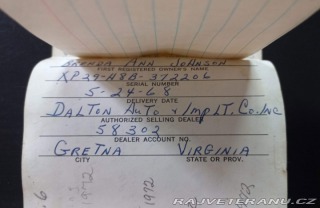 BRENDA ANN JOHNSON
FIRST REGISTERED OWNER'S NAME
XP29-H8B-372206
SERIAL NUMBER
5-24-68
DELIVERY DATE
DALTON AUTO & IMPLT. CO. INC
AUTHORIZED SELLING DEALER
58302
DEALER ACCOUNT NO.
GRETNA VIRGINIA
CITY STATE OR PROV.
1972
1972
WWW.RAJVETERANU.CZ